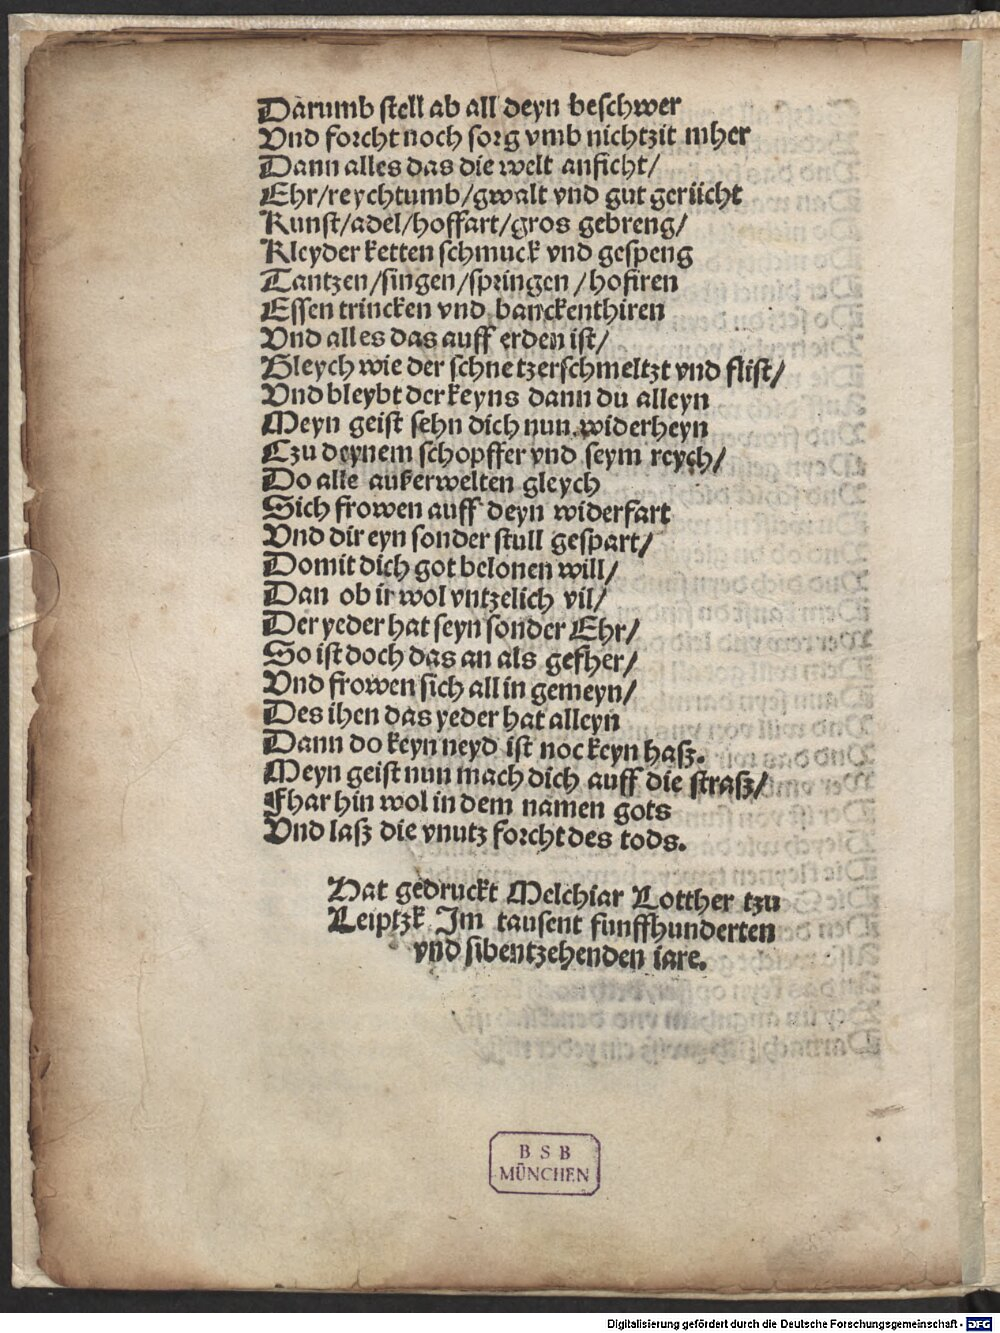 Darumb stell ab all deyn beschwer
Vnd forcht noch sorg vmb nichtzit mher
Dann alles das die welt anficht/
Ehr/reychtumb/gwalt vnd gut gerücht
Kunst/adel/hoffart/gros gebreng/
Kleyder ketten schmuck vnd gespeng
Tantzen/singen/springen/hofiren
Essen trincken vnd banckenthiren
Vnd alles das auff erden ist/
Gleych wie der schne tzerschmeltzt vnd flist/
Vnd bleybt der keyns dann du alleyn
Meyn geist sehn dich nun widerheyn
Czu deynem schopffer vnd seym reych/
Do alle aukerwelten gleych
Sich frowen auff deyn widerfart
Vnd dir eyn sonder stull gespart/
Domit dich got belonen will/
Dan ob ir wol vntzelich vil/
Der yeder hat seyn sonder Ehr/
So ist doch das an als gefher/
Vnd frowen sich all in gemeyn/
Des ihen das yeder hat alleyn
Dann do keyn neyd ist noc keyn hasz.
Meyn geist nun mach dich auff die strasz/
Fhar hin wol in dem namen gots
Vnd lasz die vnutz forcht des tods.
Hat gedruckt Melchiar Lotther tzu
Leiptzk Im tausent funffhunderten
vnd sibentzehenden iare.
B S B
MÜNCHEN
Digitalisierung gefördert durch die Deutsche Forschungsgemeinschaft - DFG